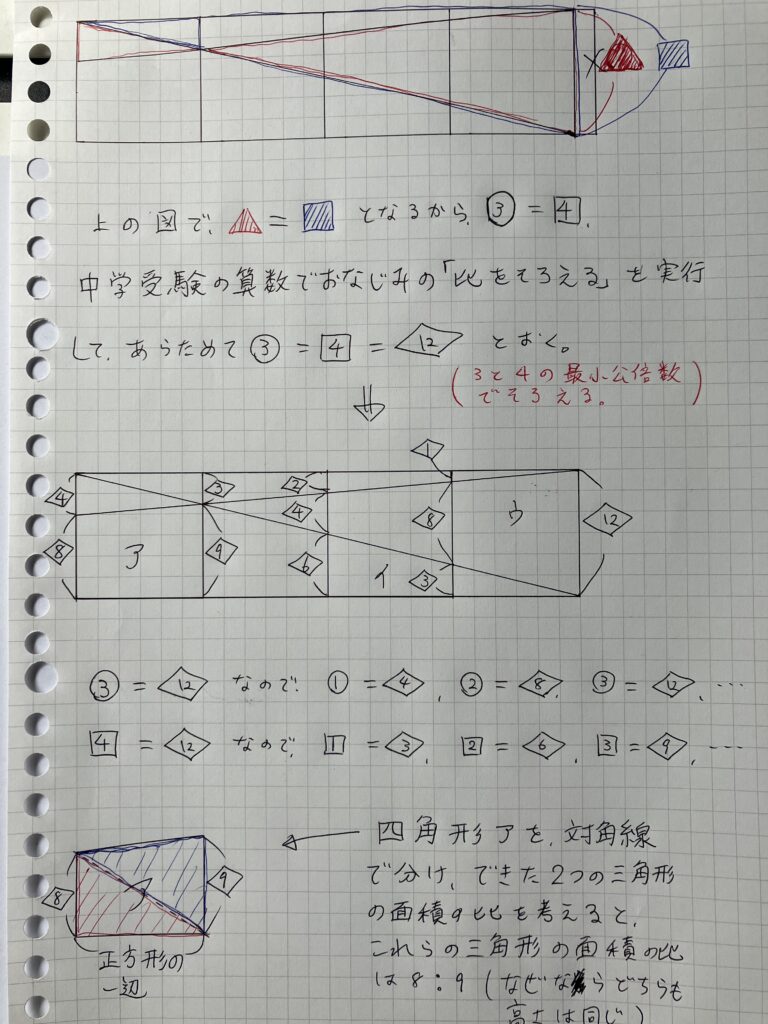 上の図で、▲=■ となるから、③=4、
中学受験の算数でおなじみの「比をそろえる」を実行
して、あらためて ③ = 4 = 12 とおく。
(3と4の最小公倍数
でそろえる。)
⇓
1
4 3 2
4 8 ウ 12
8 ア 9 6 イ 3
③ = 12 なので、①=4、②=8、③=12、…
4 = 12 なので、1=3、2=6、3=9、…
← 四角形アを、対角線
で分け、できた2つの三角形
の面積の比を考えると、
これらの三角形の面積の比
は8:9(なぜならどちらも
高さは同じ)
8 ア 9
正方形の
一辺